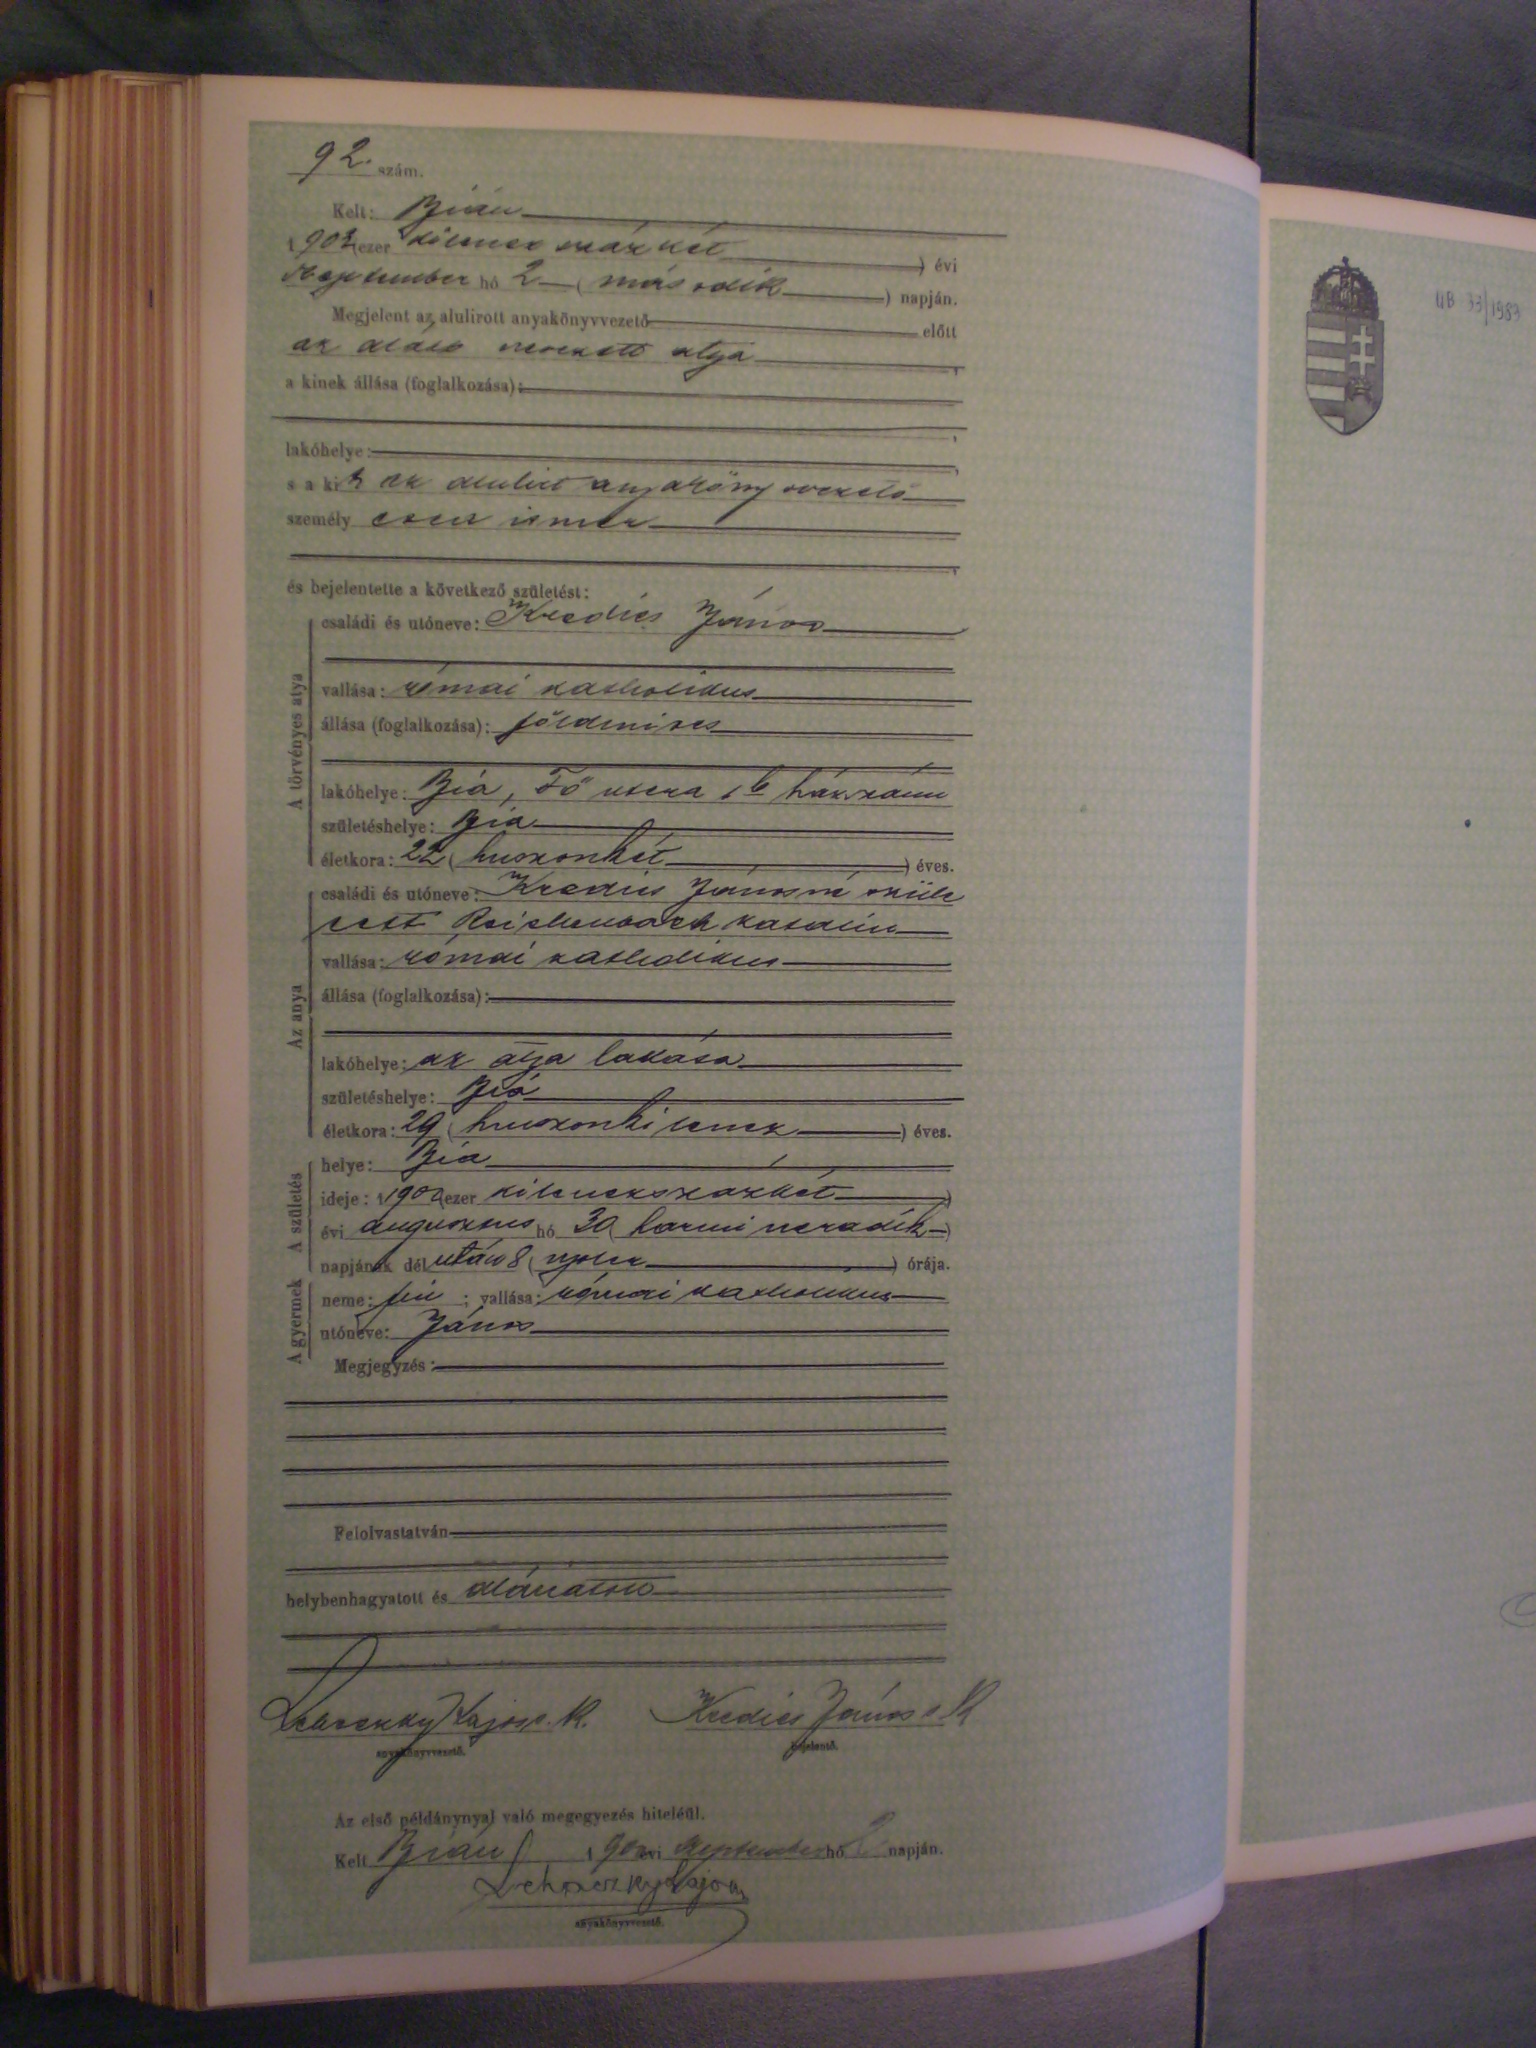 92. szám.
Kelt: Bián
1902 (ezer kilencz száz két ) évi
September hó 2 ( második ) napján.
Megjelent az alulirott anyakönyvvezető előtt
az alább nevezett atya ,
a kinek állása (foglalkozása):
,
lakóhelye: ,
s a kit az alulirt anyakönyvvezető
személy esen ismer
,
és bejelentette a következő születést:
A törvényes atya
családi és utóneve: Kredics János
vallása: római katholikus
állása (foglalkozása): földmives
lakóhelye: Bia, Fő utcza házszám
születéshelye: Bia
életkora: 22 ( huszonkét ) éves.
Az anya
családi és utóneve: Kredics Jánosné szüle
tett Reichenbach Katalin
vallása: római katholikus
állása (foglalkozása):
lakóhelye: az atya lakása
születéshelye: Bia
életkora: 29 ( huszonkilencz ) éves.
A születés
helye: Bia
ideje: 1902 (ezer kilenczszázkét )
évi augusztus hó 30 ( harminczadik )
napjának dél után 8 ( nyolcz ) órája.
A gyermek
neme: fiú ; vallása: római katholikus
utóneve: János
Megjegyzés:
Felolvastatván
helybenhagyatott és aláiratott
Lehoczky Lajos s. k. Kredics János s k
anyakönyvvezető. bejelentő.
Az első példánynyal való megegyezés hiteléül.
Kelt Bián 1902 évi September hó 2 napján.
Lehoczky Lajos
anyakönyvvezető.
UB 33/1983